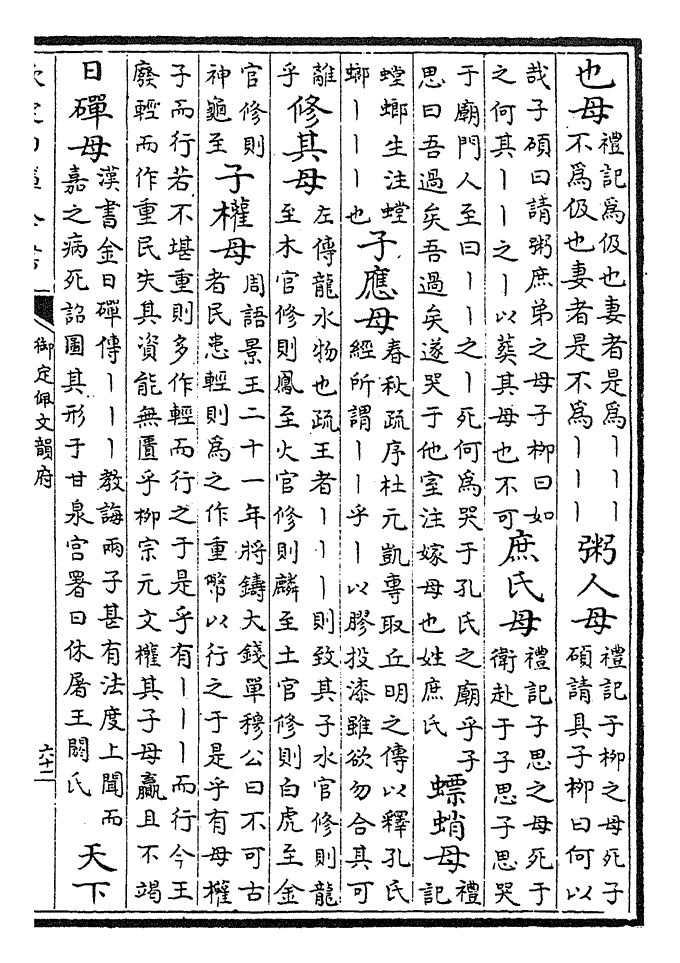 也母
禮記爲伋也妻者是爲丨丨丨
不爲伋也妻者是不爲丨丨丨
粥人母
禮記子柳之母死子
碩請具子柳曰何以
哉子碩曰請粥庶弟之母子柳曰如
之何其丨丨之丨以葬其母也不可
庶氏母
禮記子思之母死于
衛赴于子思子思哭
于廟門人至曰丨丨之丨死何爲哭于孔氏之廟乎子
思曰吾過矣吾過矣遂哭于他室注嫁母也姓庶氏
螵蛸母
禮
記
螳螂生注螳
螂丨丨丨也
子應母
春秋疏序杜元凱專取丘明之傳以釋孔氏
經所謂丨丨乎丨以膠投漆雖欲勿合其可
離
乎
修其母
左傳龍水物也疏王者丨丨丨則致其子水官修則龍
至木官修則鳳至火官修則麟至土官修則白虎至金
官修則
神龜至
子權母
周語景王二十一年將鑄大錢單穆公曰不可古
者民患輕則爲之作重幣以行之于是乎有母權
子而行若不堪重則多作輕而行之于是乎有丨丨丨而行今王
廢輕而作重民失其資能無匱乎柳宗元文權其子母贏且不竭
日磾母
漢書金日磾傳丨丨丨教誨兩子甚有法度上聞而
嘉之病死詔圖其形于甘泉宮署曰休屠王閼氏
天下
御定佩文韻府
六十二